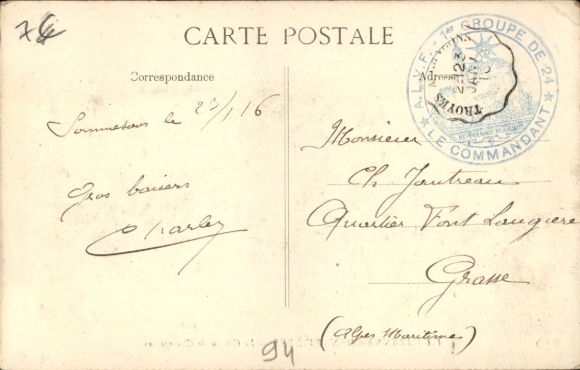 76
CARTE POSTALE
Correspondance
Adresse
A.L.V.F. - 1er GROUPE DE 24
★ LE COMMANDANT ★
TROYES
23
JANV
Sommesous le 23/1 16
Gros baisers
Charley
Monsieur
Ch Jautreau
Quartier Font Laugière
Grasse
(Alpes Maritimes)
94